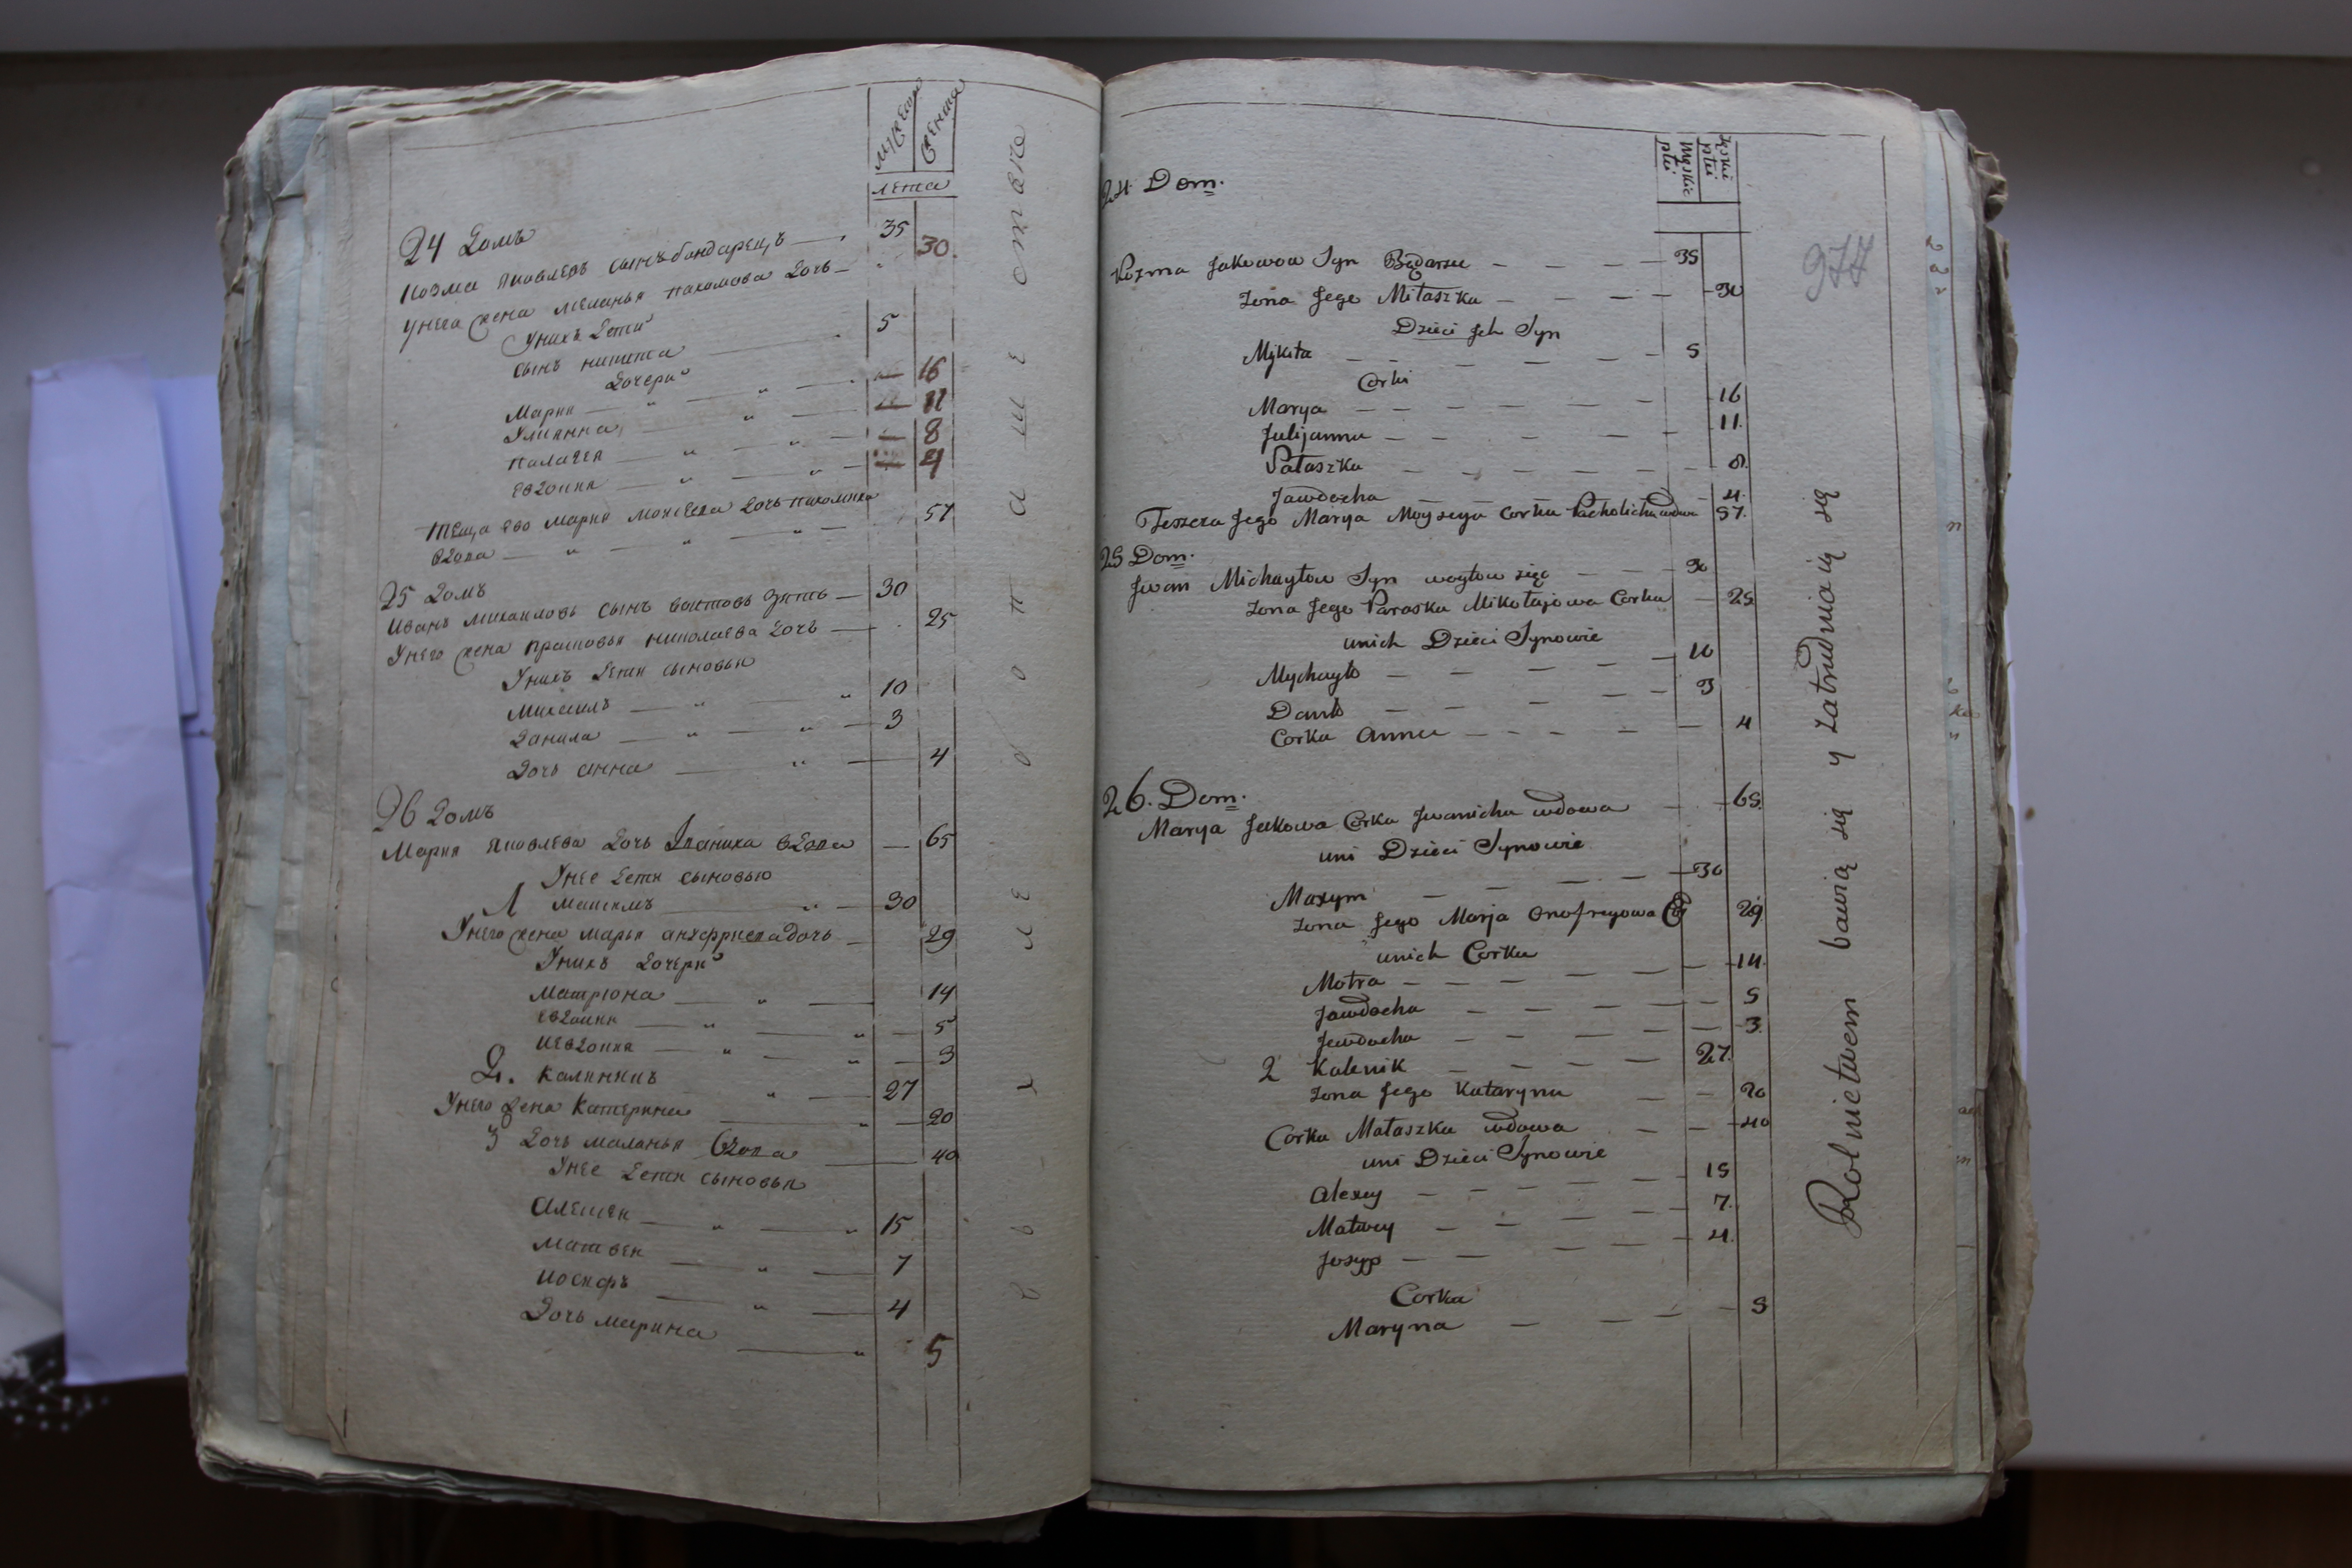 мужеска
женска
лета
24 Домъ
Козма Яковлевъ сынъ бондарецъ — 35
унего жена меланья пахомова дочь — 30
Унихъ дети
сынъ никита — 5
дочери
Мария — 16
Улиянна — 11
палагея — 8
Евдокия — 4
теща ево Мария Моисеева дочь пахомиха
вдова — 57
25 домъ
Иванъ михаиловъ сынъ воитовъ зять — 30
Унего жена прасковья николаева дочь — 25
Унихъ дети сыновья
михаилъ — 10
данила — 3
Дочь анна — 4
26 домъ
Мария яковлева дочь Иваниха вдова — 65
Унее дети сыновью
1 максимъ — 30
Унего жена марья анхфриева дочь — 29
Унихъ дочери
матрюна — 14
Евдокия — 5
и евдокия — 3
2. калинникъ — 27
Унего жена катерина — 20
3 дочь маланья вдова — 40
Унее дети сыновья
алексеи — 15
матвеи — 7
иосифъ — 4
Дочь марина — 5
Męskie płci
Żęskui płci
24 Dom.
Kozma Jakowow Syn Będarzu — 35
zona Jego Miłaszka — 30
Dzieci Jch Syn
Mykita — 5
Corki
Marya — 16
Julijanna — 11.
Pałaszka — 8.
Jawdocha — 4.
Teszcza Jego Marya Moyseya Corka Pacholicha wdowa 57.
25 Dom.
Jwan Michayłow Syn woytow zięc — 30
zona Jego Paraska Mikołajowa Corka — 25
unich Dzieci Synowie
Mychayło — 10
Danło — 3
Corka Anna — 4
26. Dom.
Marya Jakowa Corka Jwanicha wdowa — 65.
uni Dzieci Synowie
Maxym — 30
zona Jego Marja Onofreyowa C — 29
unich Corka
Motra — 14.
Jawdocha — 5
Jewdocha — 3.
2 Kalenik — 27.
zona Jego Kataryna — 20
Corka Małaszka wdowa — 40
uni Dzieci Synowie
Alexey — 15
Matwey — 7.
Josyp — 4.
Corka
Maryna — 5
Rolnictwem bawią się y zatrudniaią się
977